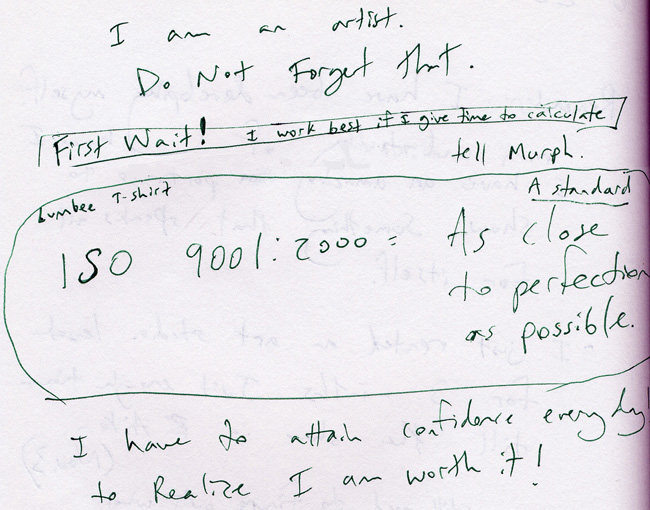 I am an artist.
Do Not Forget that.
First Wait! I work best if I give time to calculate
tell Murph.
Lumbee T-shirt
A standard
ISO 9001:2000 = As close
to perfection
as possible.
I have to attain confidence everyday!
to Realize I am worth it!